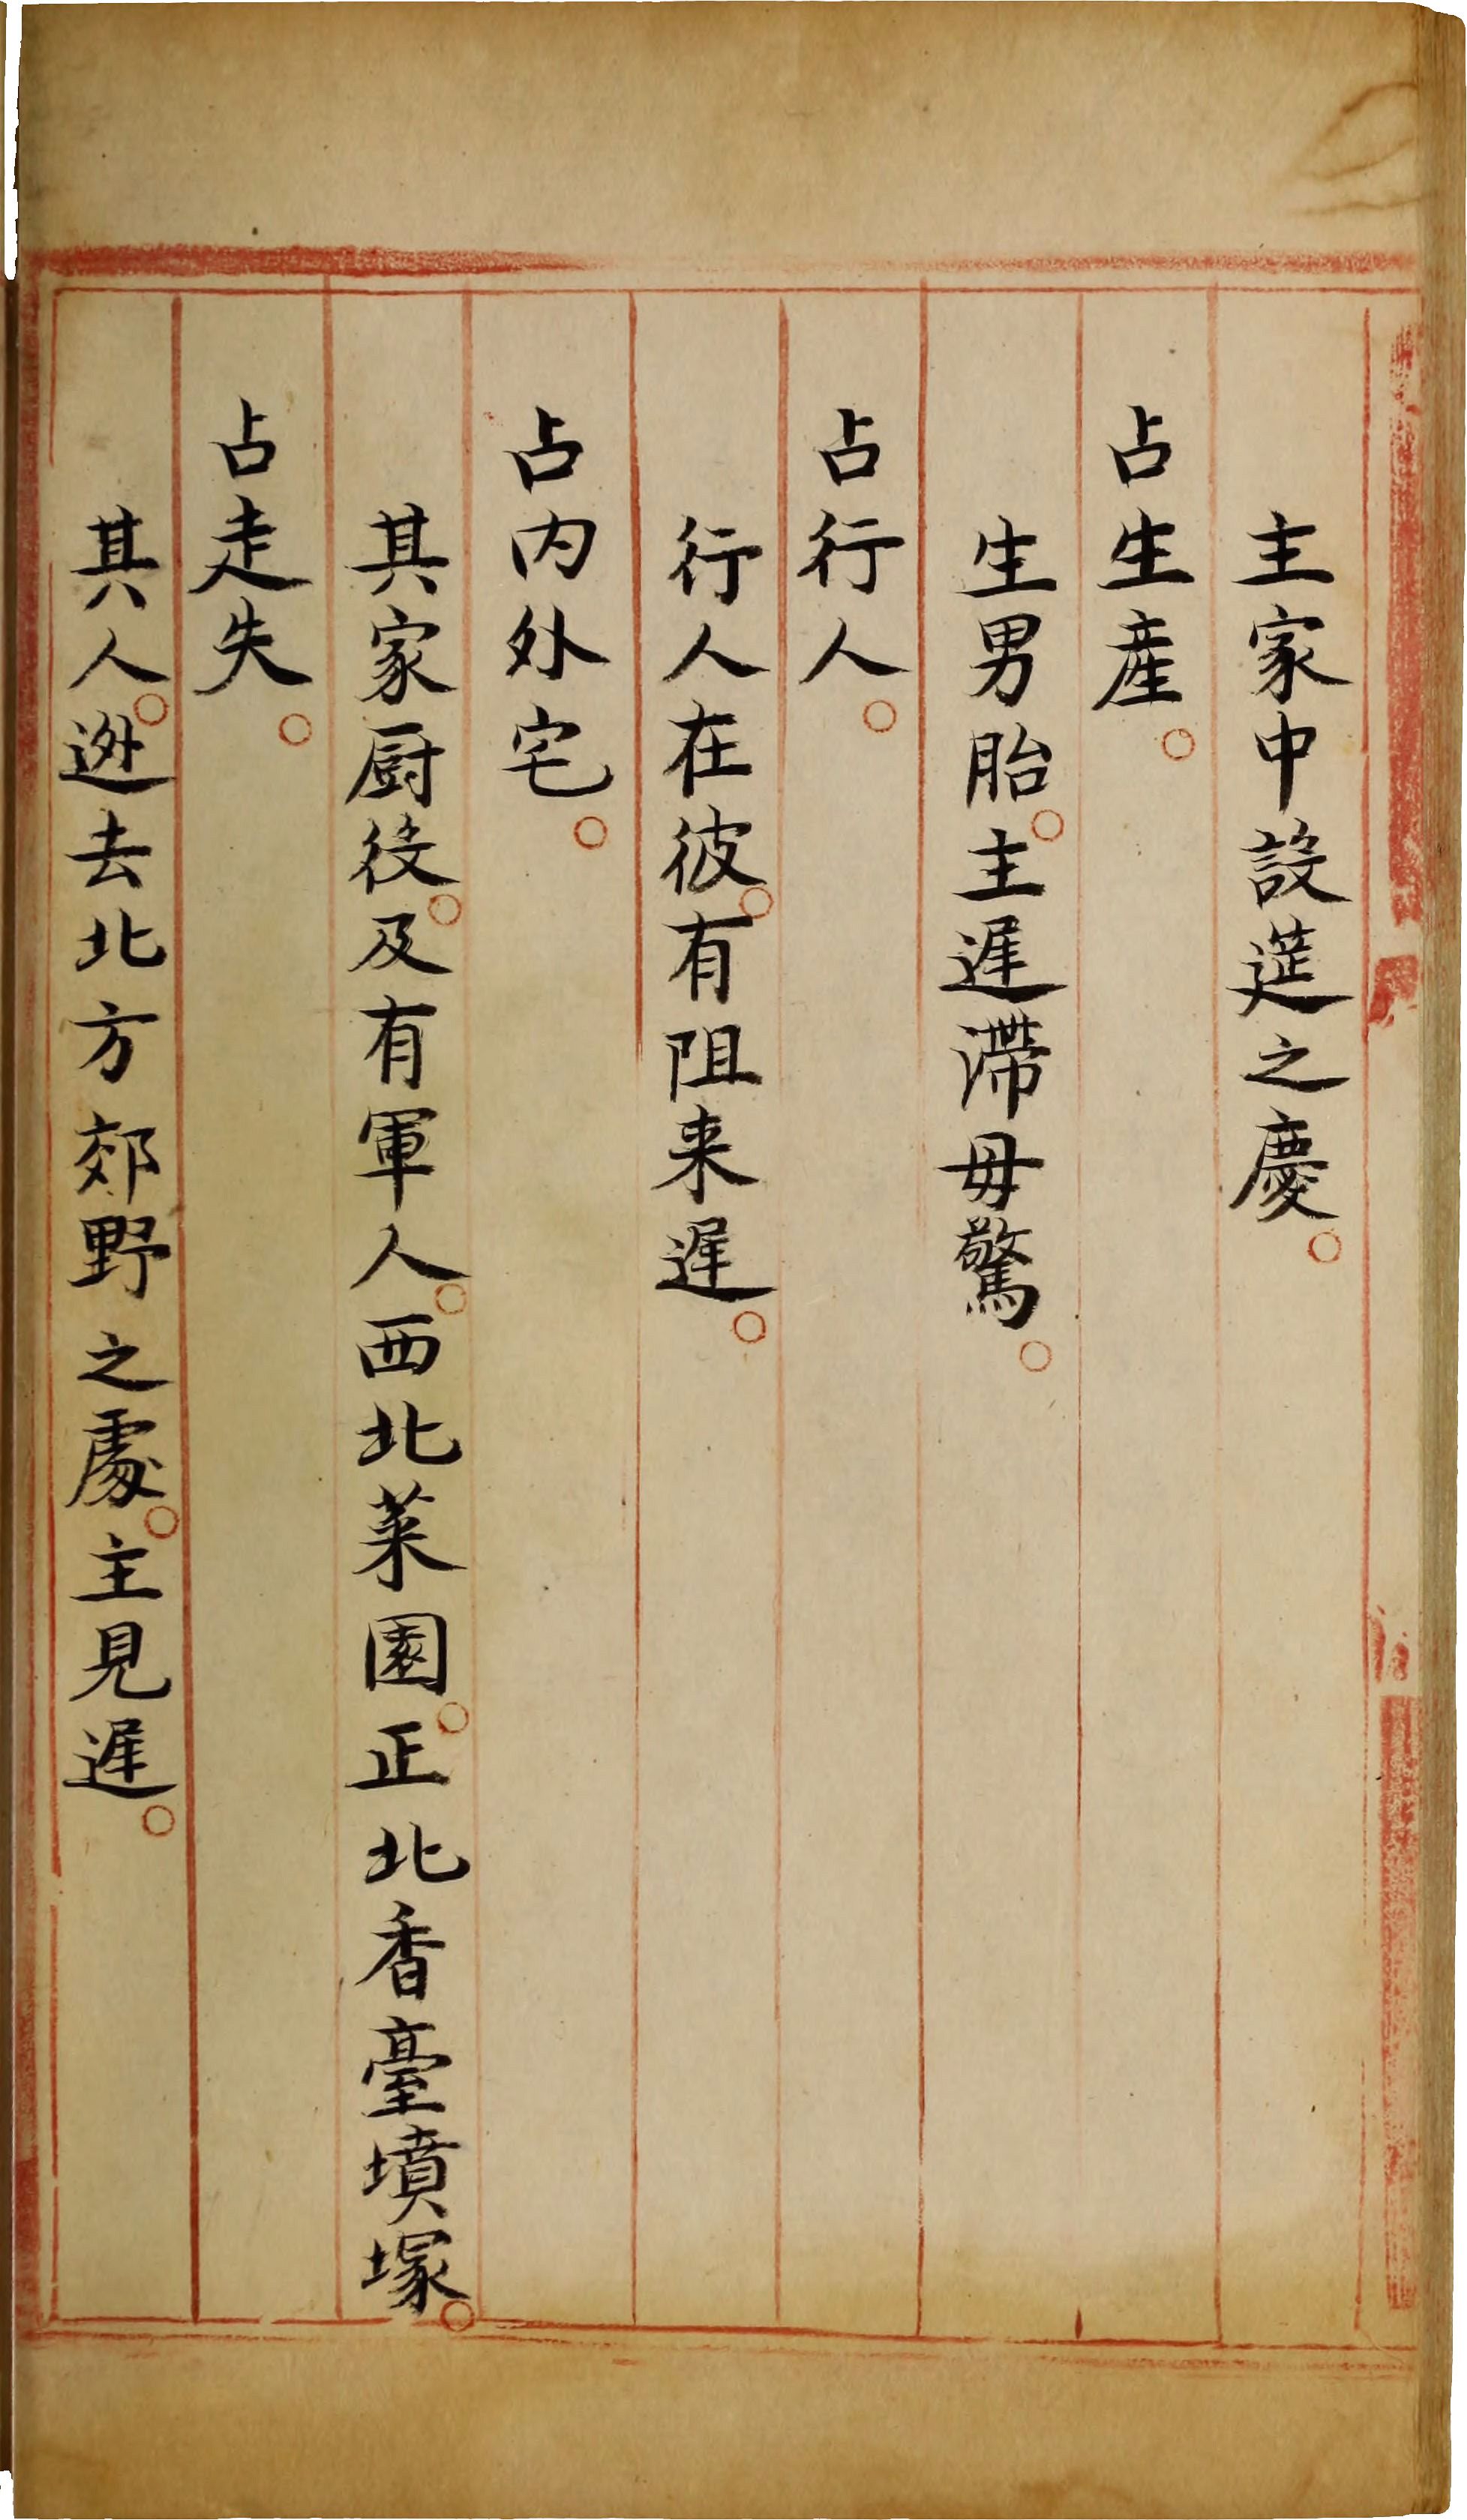 主家中設筵之慶。
占生產。
生男胎。主遲滯母驚。
占行人。
行人在彼。有阻来遲。
占内外宅。
其家厨役。及有軍人。西北菜園。正北香臺墳塚。
占走失。
其人。逃去北方郊野之處。主見遲。